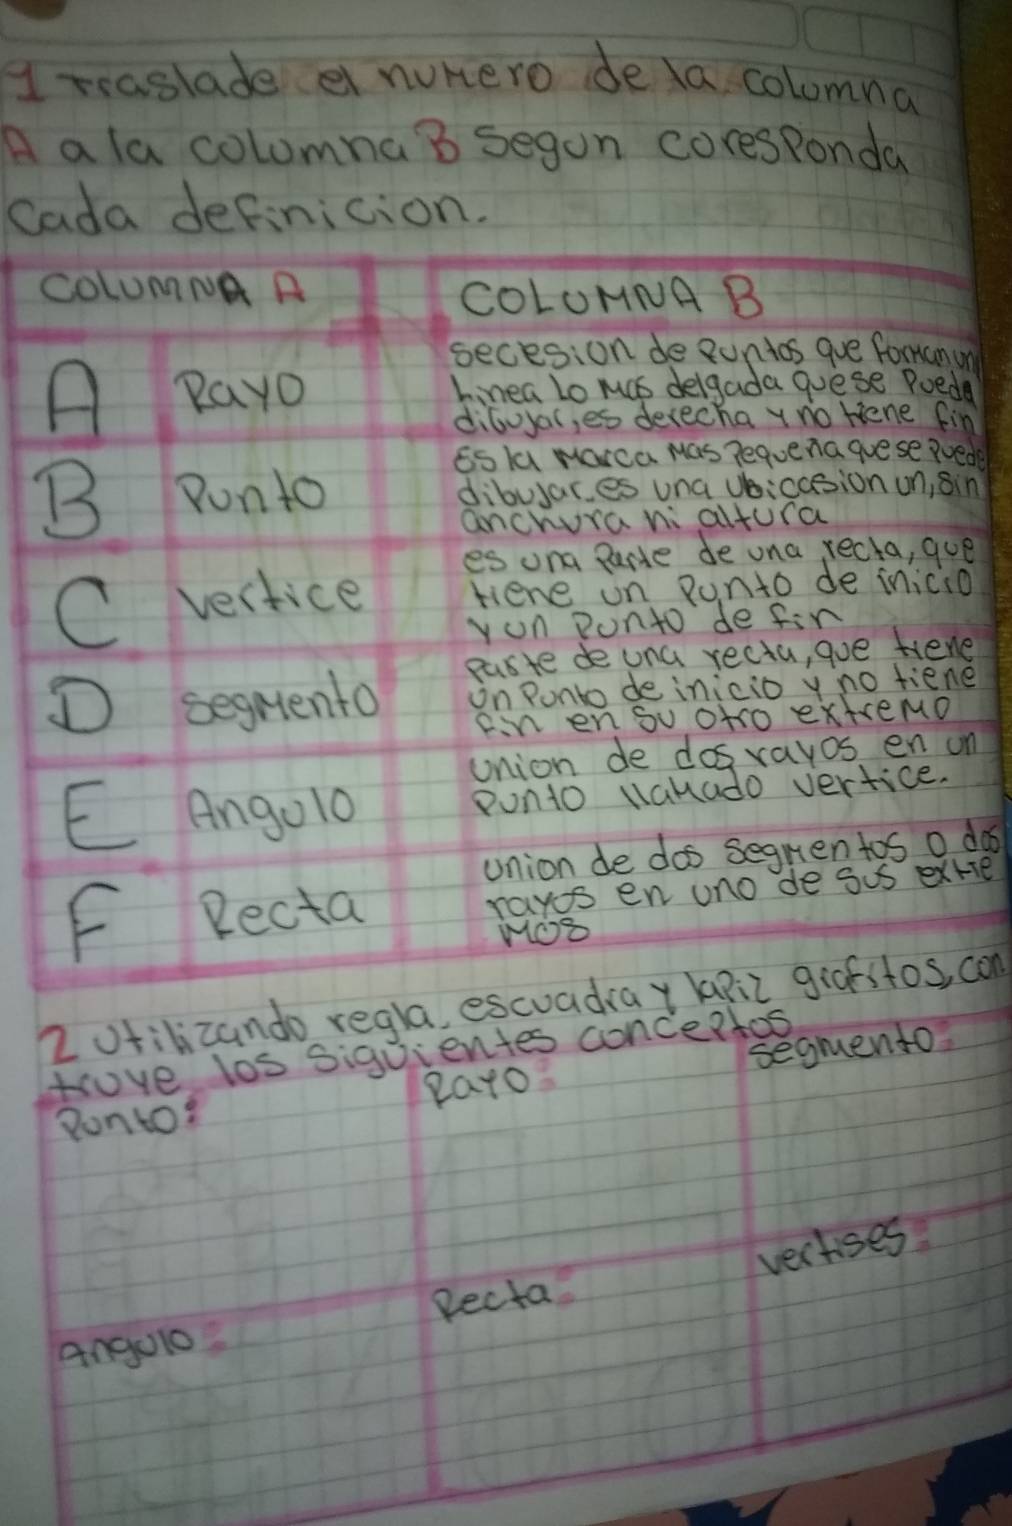 1 traslade el numero de la columna
A a la columna B segun coresponda
cada definicion.
COLUMNA A
COLUMNA B
A Rayo
secesion de puntos que forman un
Linea lo mas delgada que se puede
dibujar, es derecha y no tiene fin
B Punto
es la marca mas pequeña que se puede
dibujar. es una ubicasion un, sin
anchura ni altura
C vertice
es una parte de una recta, que
tiene un punto de inicio
y un punto de fin
D segmento
parte de una recta, que tiene
un punto de inicio y no tiene
fin en su otro extremo
E Angulo
union de dos rayos en un
punto llamado vertice.
F Recta
union de dos segmentos o dos
rayos en uno de sus extre
mos
2 utilizando regla, escuadra y lapiz grafitos, con
truye los siguientes conceptos
Punto:
Rayo:
segmento:
Angulo:
Recta:
vertises: